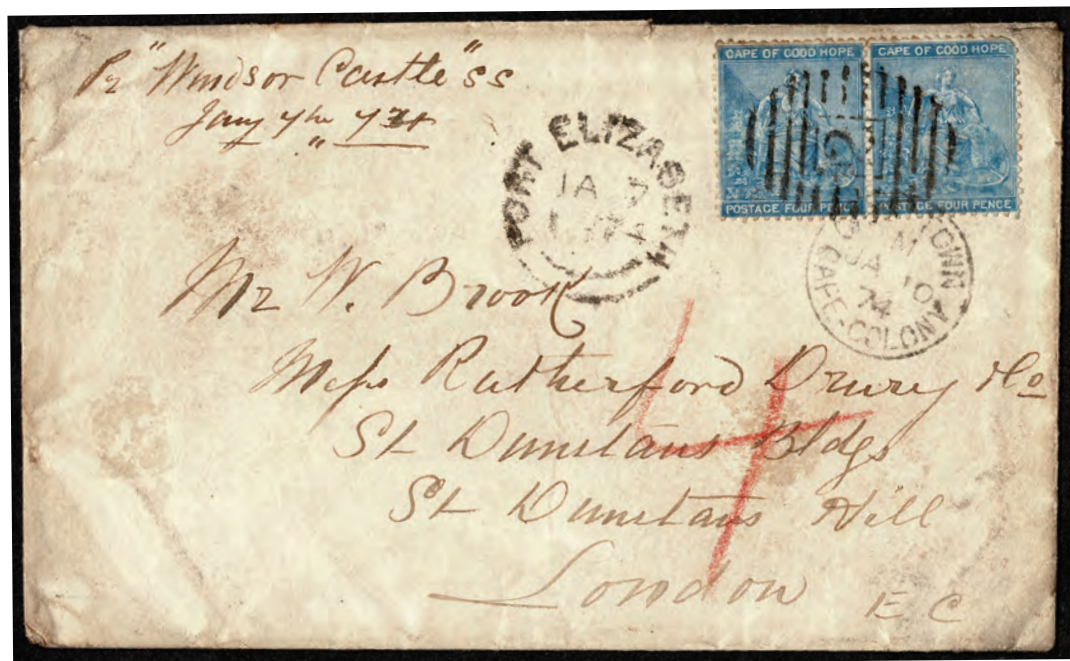 Pr "Windsor Castle" SS
Jany 7th 74
CAPE OF GOOD HOPE
POSTAGE FOUR PENCE
CAPE OF GOOD HOPE
POSTAGE FOUR PENCE
PORT ELIZABETH
JA 7
1874
JA 10
74
CAPE-COLONY
Mr W. Brook
Mefs Rutherford Drury &Co
St Dunstans Bldgs
St Dunstans Hill
London
E C
4